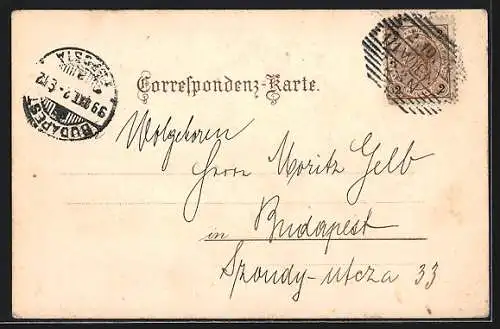 Correspondenz-Karte.
BUDAPEST
99 OKT. 2
POSTA
WIEN
2 2
Wolgeboren
Herrn Moritz Gelb
in Budapest
Szondy-utcza 33